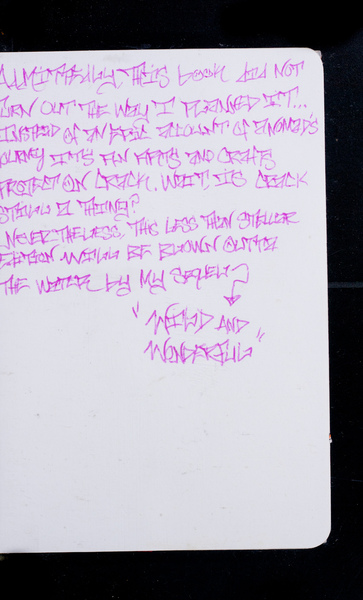 Admittedly, this book did not
turn out the way I planned it...
Instead of an epic account of a nomad's
journey it's an arts and crafts
project on crack. Wait, is crack
still a thing?
Nevertheless, this less than steller
edition will be blown outta
the water by my sequel
"Wild and
Wonderful"